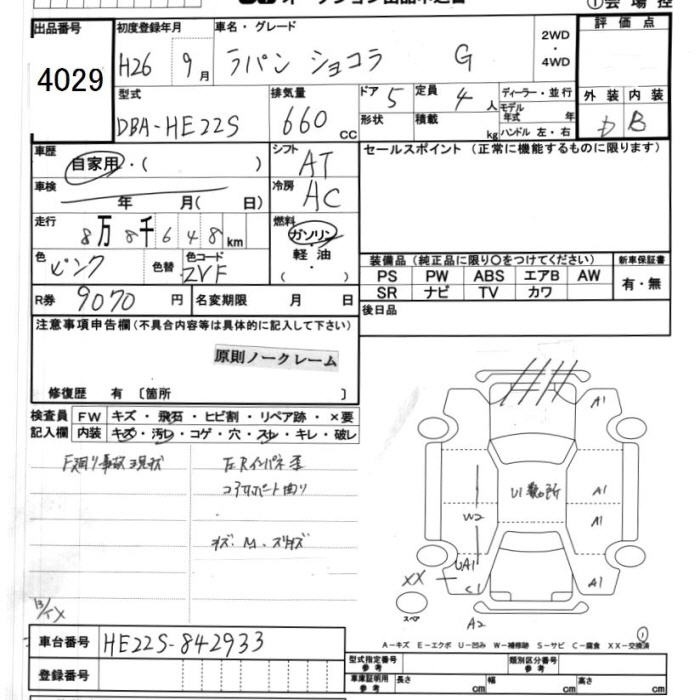 ①会場控
出品番号
4029
初度登録年月
H26 9月
車名・グレード
ラパン ショコラ G
2WD
・
4WD
評価点
外装 内装
D B
型式
DBA-HE22S
排気量
660 CC
ドア 5
定員 4人
形状
積載 kg
ディーラー・並行
モデル年式 年
ハンドル 左・右
車歴
自家用・( )
シフト
AT
セールスポイント (正常に機能するものに限ります)
車検
年 月( 日)
冷房
AC
走行
8万8千648km
燃料
ガソリン
・
軽油
・
( )
色
ピンク
色替
色コード
ZVF
装備品 (純正品に限り〇をつけてください)
PS PW ABS エアB AW
SR ナビ TV カワ
新車保証書
有・無
R券 9070円
名変期限 月 日
後日品
注意事項申告欄(不具合内容等は具体的に記入して下さい)
原則ノークレーム
修復歴 有〔箇所 〕
検査員記入欄
FW キズ・飛石・ヒビ割・リペア跡・×要
内装 キズ・汚レ・コゲ・穴・スレ・キレ・破レ
F廻り事故現状
左Rインパネ歪
コアサポート曲り
キズ.M.ズキズ
A1
U1数ヶ所
A1
W2
A1
UA1
XX
C1
A1
スペア
A2
A-キズ E-エクボ U-凹み W-補修跡 S-サビ C-腐食 XX-交換済
①
車台番号 HE22S-842933
登録番号
型式指定番号 参考
類別区分番号 参考
車庫証明用 参考
長さ cm
幅 cm
高さ cm